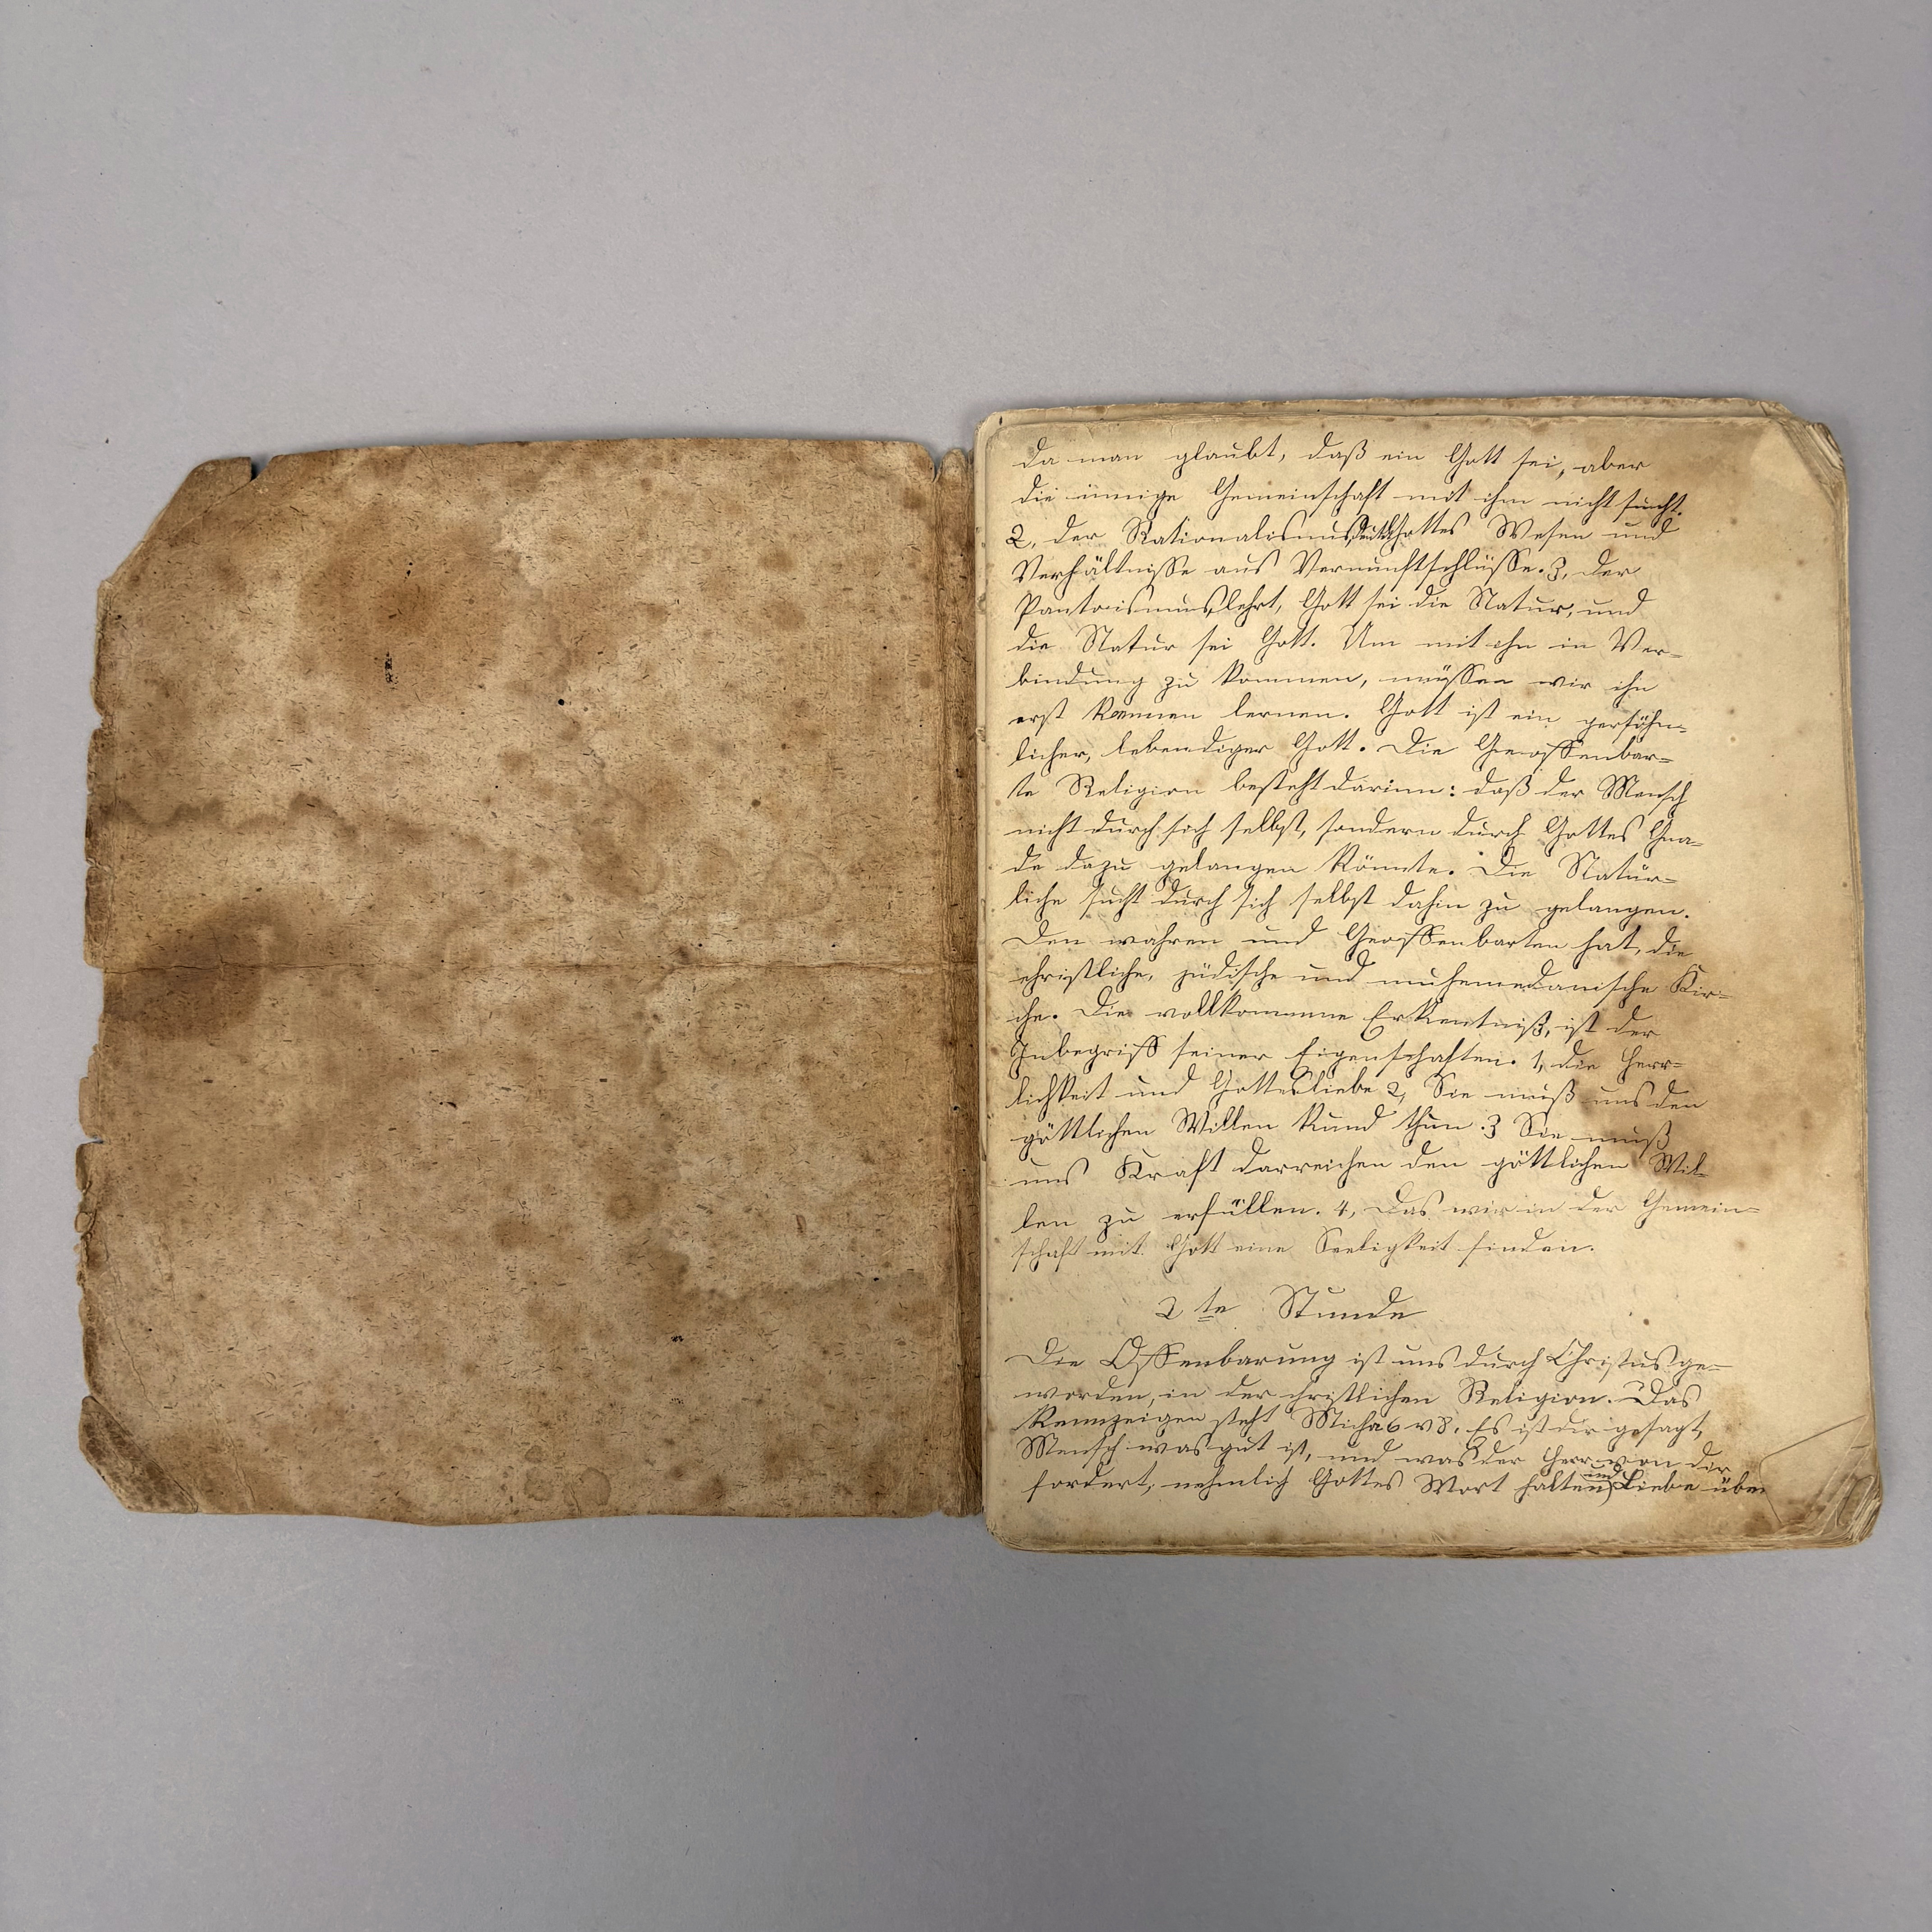 da man glaubt, daß ein Gott sei, aber
die innige Gemeinschaft mit ihm nicht sucht.
2, der Rationalismus, Gottes Wesen und
Verhältnisse aus Vernunftschlüsse. 3, der
Pantaismus lehrt, Gott sei die Natur, und
die Natur sei Gott. Um mit ihn in Ver=
bindung zu kommen, müssen wir ihn
erst kennen lernen. Gott ist ein persöhn=
licher, lebendiger Gott. Die Geoffenbar=
te Religion besteht darinn: daß der Mensch
nicht durch sich selbst, sondern durch Gottes Gna=
de dazu gelangen könnte. Die Natür=
liche sucht durch sich selbst dahin zu gelangen.
Den wahren und Geoffenbarten hat, die
christliche, jüdische und muhemedanische Kir=
che. Die vollkommne Erkentniß, ist der
Inbegriff seiner Eigenschaften. 1, die Herr=
lichkeit und Gottesliebe 2, Sie muß uns den
göttlichen Willen kund thun. 3 Sie muß
uns Kraft darreichen den göttlichen Wil=
len zu erfüllen. 4, Das wir in der Gemein=
schaft mit Gott eine Seeligkeit finden.
2te Stunde
Die Offenbarung ist uns durch Christus ge=
worden, in der christlichen Religion. Das
Kennzeigen steht Micha 6 v 8. Es ist dir gesagt,
Mensch was gut ist, und was der Herr von dir
fordert, nehmlich Gottes Wort halten und Liebe üben